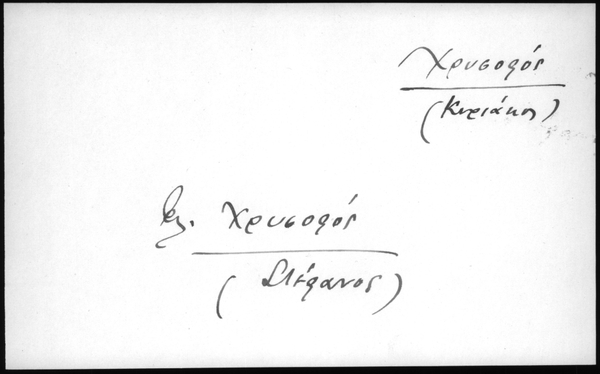 Χρυσολός
(Κυριάκος)
βλ. Χρυσολός
(Στέφανος)